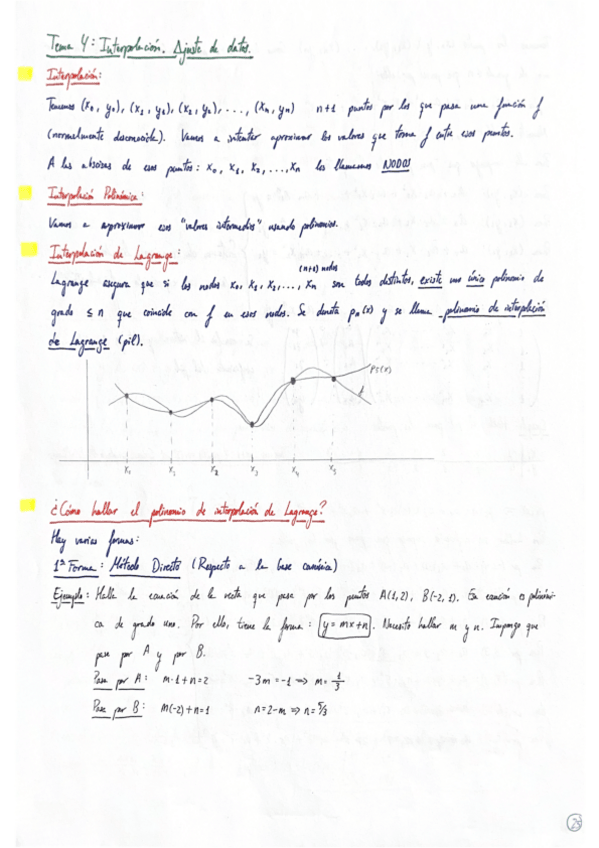 Tema 4: Interpolación. Ajuste de datos.
Interpolación:
Tenemos (x₀, y₀), (x₁, y₁), (x₂, y₂), ..., (xₙ, yₙ) n+1 puntos por los que pasa una función f
(normalmente desconocida). Vamos a intentar aproximar los valores que toma f entre esos puntos.
A las abscisas de esos puntos: x₀, x₁, x₂, ..., xₙ les llamamos NODOS
Interpolación Polinómica:
Vamos a aproximar esos "valores intermedios" usando polinomios.
Interpolación de Lagrange:
(n+1) nodos
Lagrange asegura que si los nodos x₀, x₁, x₂, ..., xₙ son todos distintos, existe un único polinomio de
grado ≤ n que coincide con f en esos nodos. Se denota pₙ(x) y se llama polinomio de interpolación
de Lagrange (pil).
f
x₂ x₃ x₄ x₅
¿Cómo hallar el polinomio de interpolación de Lagrange?
Hay varias formas:
1ª Forma: Método Directo (Respecto a la base canónica)
Ejemplo: Halla la ecuación de la recta que pasa por los puntos A(1,2), B(-2,1). Esa ecuación es polinómi-
ca de grado uno. Por ello, tiene la forma: y = mx+n. Necesito hallar m y n. Impongo que
pase por A y por B.
Pasa por A: m·1+n=2 -3m=-1 ⇒ m=1/3
Pasa por B: m(-2)+n=1 n=2-m ⇒ n=5/3